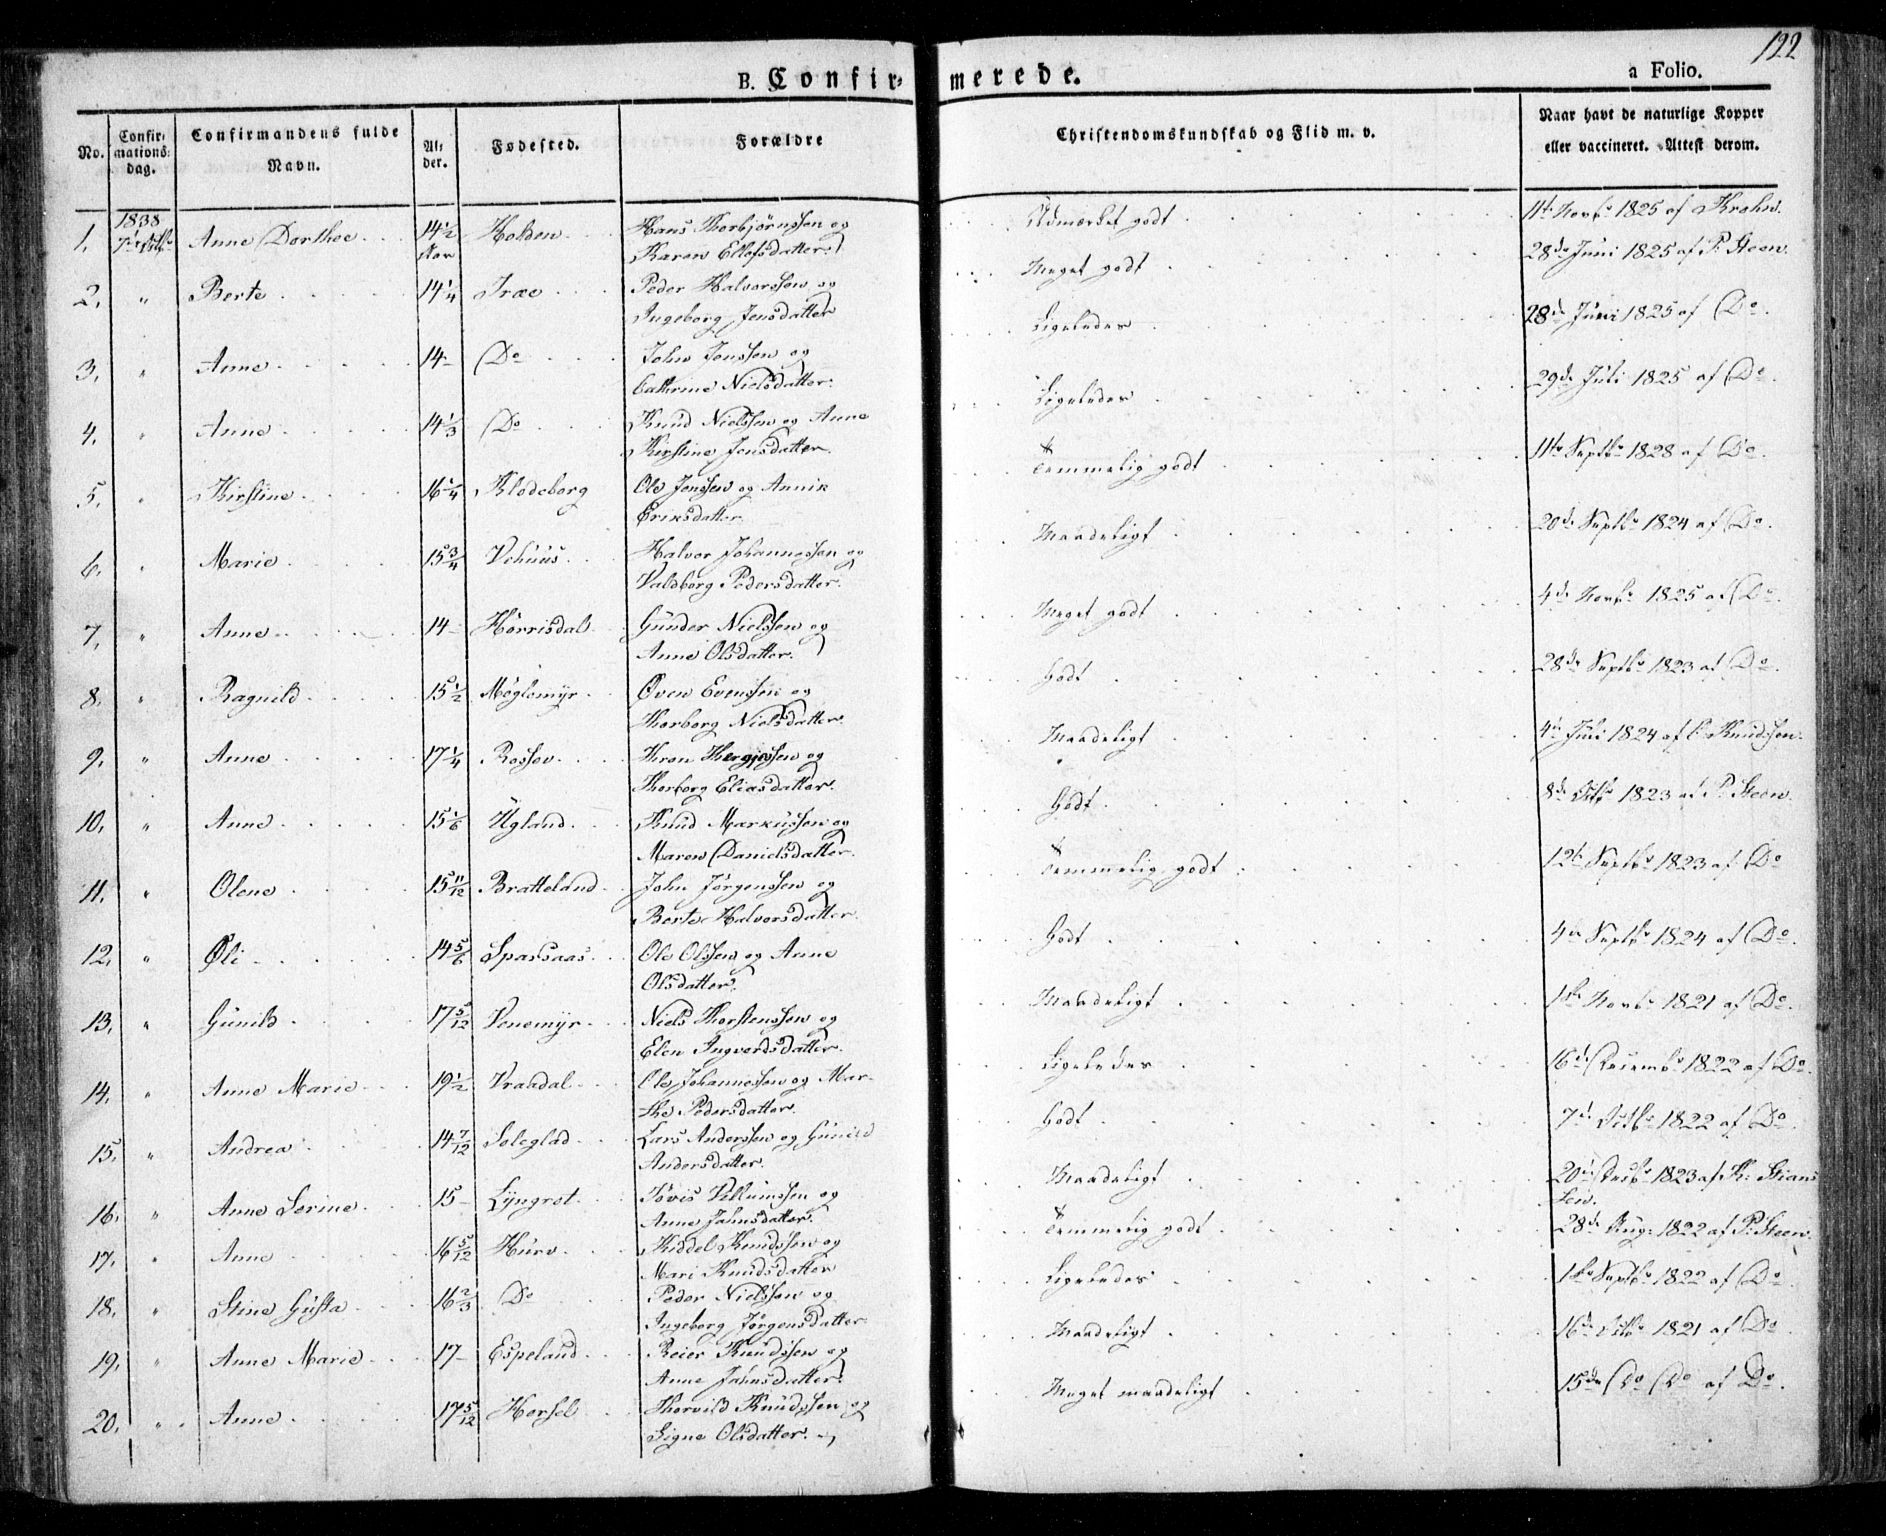 122
B. Confir- merede.
a Folio.
No. Confir-mations-dag. Confirmandens fulde Navn. Al-der. Fødested. Forældre Christendomskundskab og Flid m. v. Naar havt de naturlige Kopper eller vaccineret. Attest derom.
1838
1. 7de Octbr Anne Dorthee 14 1/2 Aar Holden Hans Thorbjørnssen og Udmærket godt 11te Novbr 1825 af Krohn.
Karen Ellefsdatter.
2. " Berte 14 1/4 Træe Peder Halvorssen og Meget godt 28de Juni 1825 af P. Steen.
Ingeborg Jensdatter
3. " Anne 14 Do John Jenssen og Ligeledes 28de Juni 1825 af Do.
Cathrine Nielsdatter.
4. " Anne 14 1/3 Do Knud Nielssen og Anne Ligeledes 29de Juli 1825 af Do.
Kirstine Jensdatter.
5. " Kirstine 16 1/4 Klodeborg Ole Jenssen og Annik Temmelig godt 11te Septbr 1828 af Do.
Eriksdatter
6. " Marie 15 3/4 Vehuus Halvor Johannessen og Maadeligt 20de Septbr 1824 af Do.
Valdborg Pedersdatter.
7. " Anne 14 Hørrisdal Gunder Nielssen og Meget godt 4de Novbr 1825 af Do.
Anne Olsdatter.
8. " Ragnild 15 1/2 Møglemyr Øven Evenssen og Godt 28de Septbr 1823 af Do.
Thorborg Nielsdatter.
9. " Anne 17 1/4 Rossev Thron Thergjessen og Maadeligt 4de Juli 1824 af C. Knudssen.
Thorborg Eliasdatter.
10. " Anne 15 1/6 Ugland Knud Markussen og Godt 8de Octbr 1823 af P. Steen.
Maren Danielsdatter.
11. " Olene 15 11/12 Bratteland John Jørgenssen og Temmelig godt 12te Septbr 1823 af Do
Berte Halvorsdatter.
12. " Øli 14 5/6 Sparsaas Ole Olssen og Anne Godt 4de Septbr 1824 af Do.
Olsdatter.
13. " Gunild 17 5/12 Venemyr Niels Thorstenssen og Maadeligt 1ste Novbr 1821 af Do.
Elen Ingverdsdatter.
14. " Anne Marie 19 1/2 Vraadal Ole Johannessen og Mar- Ligeledes 16de Decembr 1822 af Do.
the Pedersdatter.
15. " Andrea 14 7/12 Soleglad Lars Anderssen og Gunild Godt 7de Octbr 1822 af Do.
Andersdatter.
16. " Anne Serine 15 Lyngrot Tøvis Vellumssen og Maadeligt 20de Decbr 1823 af K. Stians
Anne Jahnsdatter. sen.
17. " Anne 16 5/12 Hurv Kiddel Knudssen og Temmelig godt 28de Aug. 1822 af P. Steen.
Mari Knudsdatter
18. " Stine Gusta 16 2/3 Do Peder Nielssen og Ligeledes 1ste Septbr 1822 af Do.
Ingeborg Jørgensdatter
19. " Anne Marie 17 Espeland Reier Knudssen og Maadeligt 16de Octbr 1821 af Do
Anne Jahnsdatter.
20. " Anne 17 5/12 Horsel Thorvild Knudssen og Meget maadeligt 15de Do Do af Do.
Signe Olsdatter.